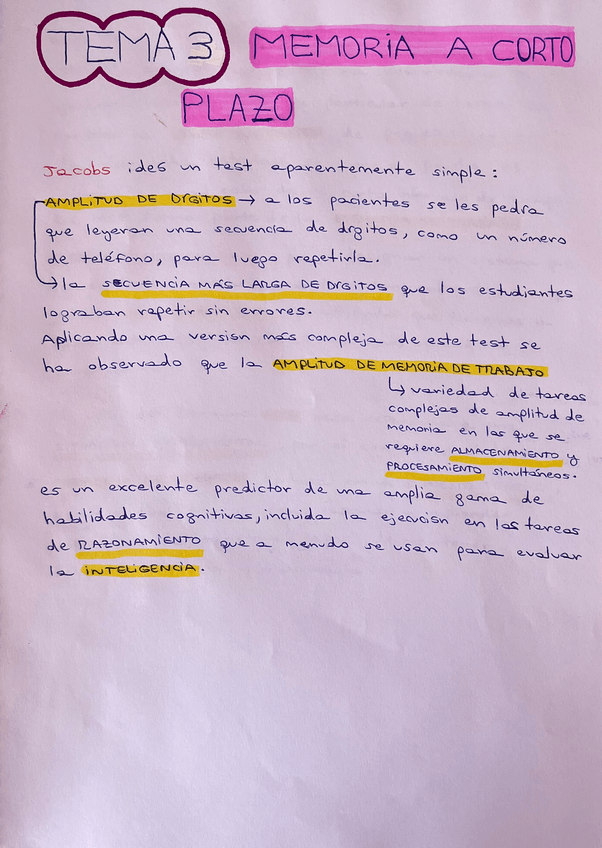 TEMA 3 MEMORIA A CORTO
PLAZO
Jacobs ideó un test aparentemente simple:
AMPLITUD DE DÍGITOS → a los pacientes se les pedía
que leyeran una secuencia de dígitos, como un número
de teléfono, para luego repetirla.
↳ la SECUENCIA MÁS LARGA DE DÍGITOS que los estudiantes
lograban repetir sin errores.
Aplicando una versión más compleja de este test se
ha observado que la AMPLITUD DE MEMORIA DE TRABAJO
↳ variedad de tareas
complejas de amplitud de
memoria en las que se
requiere ALMACENAMIENTO y
PROCESAMIENTO simultáneos.
es un excelente predictor de una amplia gama de
habilidades cognitivas, incluida la ejecución en las tareas
de RAZONAMIENTO que a menudo se usan para evaluar
la INTELIGENCIA.